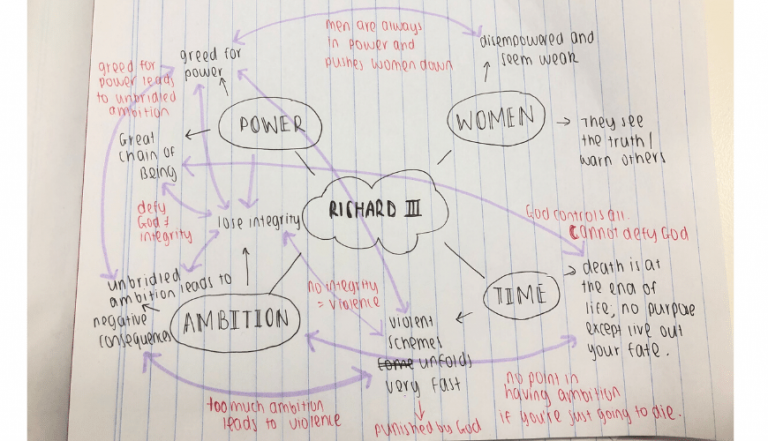 men are always
in power and
pushes women down
greed for
power
disempowered and
seem weak
greed for
power leads
to unbridled
ambition
POWER
WOMEN
They see
the truth /
warn others
Great
chain of
Being
defy
God &
integrity
lose integrity
RICHARD III
God controls all.
Cannot defy God
death is at
the end of
life; no purpose
except live out
your fate.
unbridled
ambition leads to
negative
consequences
no integrity
= violence
AMBITION
TIME
violent
schemes
come unfolds
very fast
too much ambition
leads to violence
punished by God
no point in
having ambition
if you're just going to die.